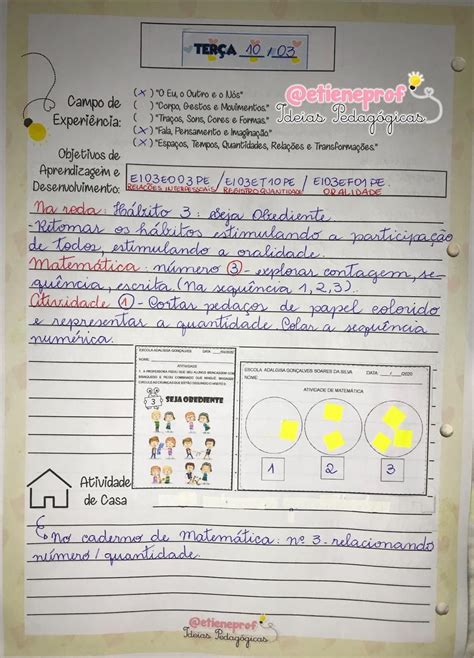 TERÇA 10 / 03
@etieneprof
Ideias Pedagógicas
Campo de
Experiência:
(X) "O Eu, o Outro e o Nós"
( ) "Corpo, Gestos e Movimentos."
( ) "Traços, Sons, Cores e Formas."
(X) "Fala, Pensamento e Imaginação."
(X) "Espaços, Tempos, Quantidades, Relações e Transformações."
Objetivos de
Aprendizagem e
Desenvolvimento:
EI03EO03PE / EI03ET10PE / EI03EF01PE
RELAÇÕES INTERPESSOAIS / REGISTRO QUANTIDADE / ORALIDADE
Na roda: Hábito 3: Seja Obediente
- Retomas os hábitos estimulando a participação
de Todos, estimulando a oralidade.
Matemática: número 3 - explorar contagem, se-
quência, escrita (Na sequência 1, 2, 3).
Atividade 1 - Cortar pedaços de papel colorido
e representar a quantidade. Colar a sequência
numérica.
ESCOLA ADALGISA GONÇALVES DATA __/__/2020
NOME:
ATIVIDADE
3 SEJA OBEDIENTE
ESCOLA ADALGISA GONÇALVES SOARES DA SILVA DATA __/__/2020
NOME:
ATIVIDADE DE MATEMÁTICA
1 2 3
Atividade
de Casa
No caderno de matemática: nº 3 - relacionando
número / quantidade.
@etieneprof
Ideias Pedagógicas